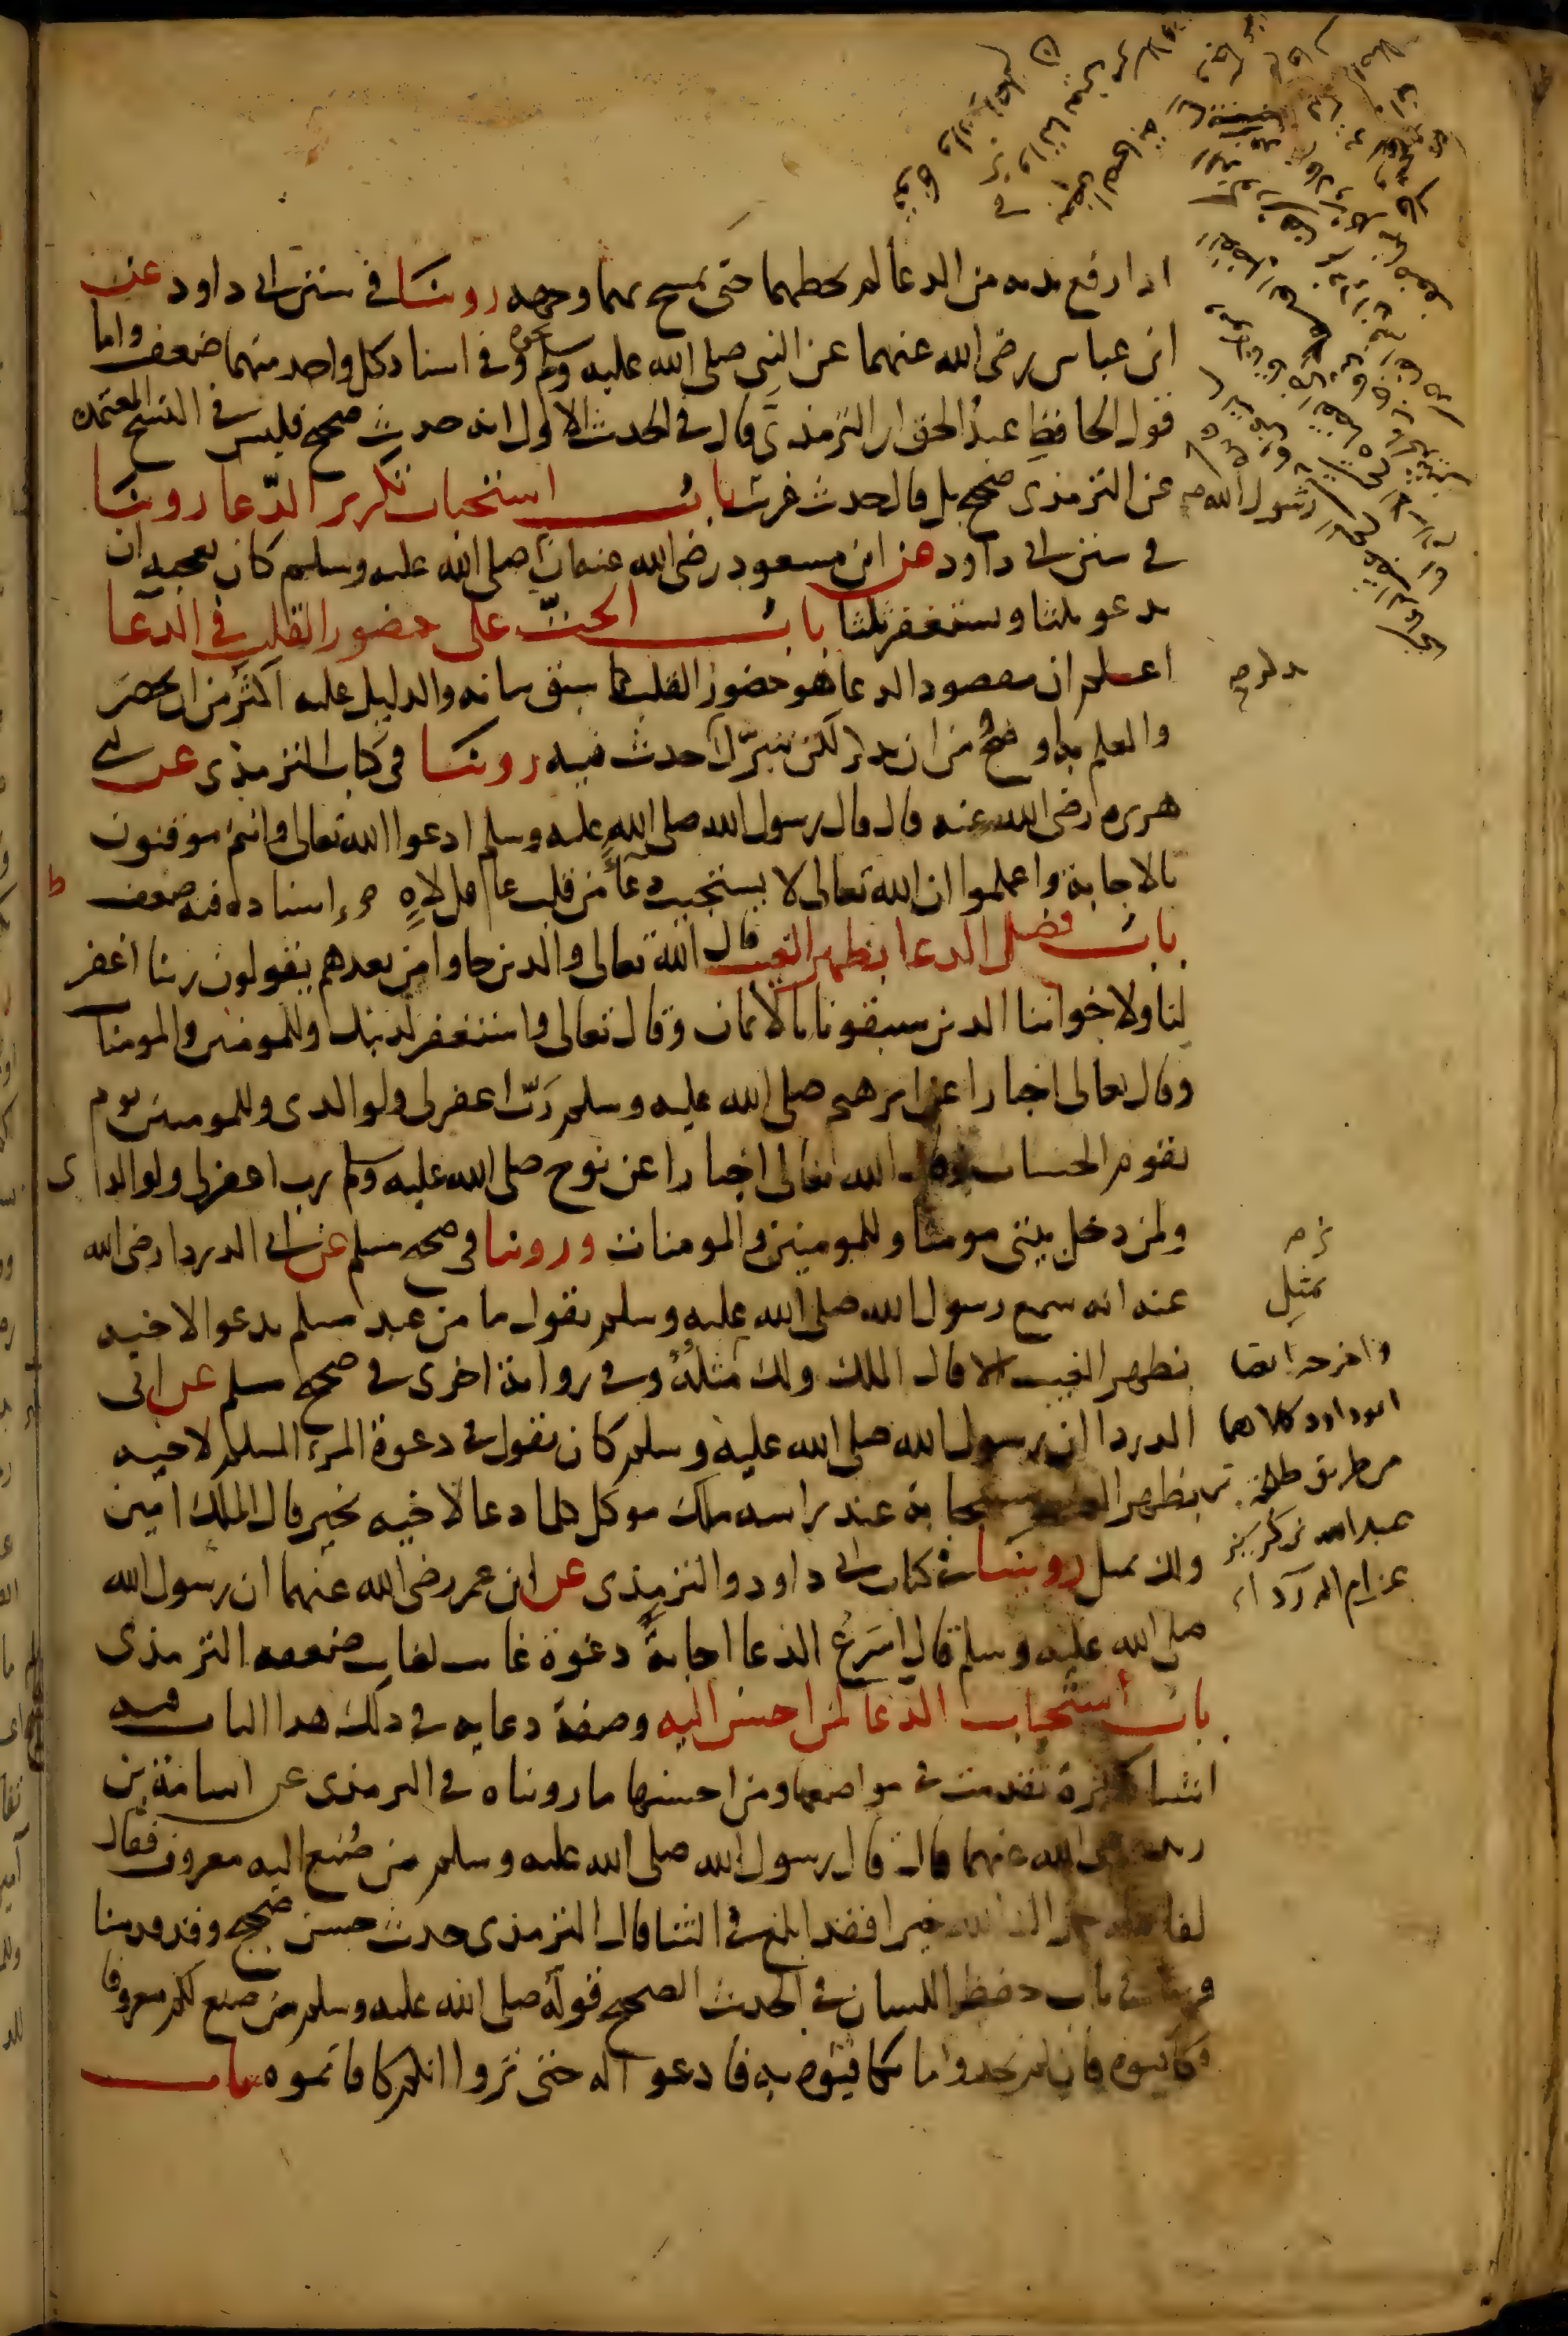 اذا رفع يديه من الدعا لم يحطهما حتى يمسح بهما وجهه روينا في سنن ابى داود عن
ابن عباس رضى الله عنهما عن النبي صلى الله عليه وسلم نحوه وفي اسناد كل واحد منهما ضعف واما
قول الحافظ عبد الحق ان الترمذي قال في الحديث الاول انه حديث صحيح فليس في النسخ المعتمده
عن الترمذي صحيح بل قال حديث غريب باب استحباب تكرير الدعا روينا
في سنن ابى داود عن ابن مسعود رضى الله عنه ان رسول الله صلى الله عليه وسلم كان يعجبه ان
يدعو ثلثا ويستغفر ثلثا باب الحث على حضور القلب في الدعا
اعلم ان مقصود الدعا هو حضور القلب كما سبق بيانه والدليل عليه اكثر من ان يحصر
والعلم به اوضح من ان يذكر لكن نتبرك بحديث فيه روينا في كتاب الترمذي عن ابى
هريره رضى الله عنه قال قال رسول الله صلى الله عليه وسلم ادعوا الله تعالى وانتم موقنون
بالاجابة واعلموا ان الله تعالى لا يستجيب دعآء من قلب غافل لاهٍ اسناده فيه ضعف
باب فضل الدعا بظهر الغيب قال الله تعالى والذين جاوا من بعدهم يقولون ربنا اغفر
لنا ولاخواننا الذين سبقونا بالايمان وقال تعالى واستغفر لذنبك وللمومنين والمومنات
وقال تعالى اخبارا عن ابرهيم صلى الله عليه وسلم ربّ اغفر لى ولوالدى وللمومنين يوم
يقوم الحساب وقال الله تعالى اخبارا عن نوح صلى الله عليه وسلم رب اغفر لى ولوالدى
ولمن دخل بيتى مومنا وللمومنين والمومنات وروينا في صحيح مسلم عن ابى الدردا رضى الله
عنه انه سمع رسول الله صلى الله عليه وسلم يقول ما من عبد مسلم يدعو لاخيه
بظهر الغيب الا قال الملك ولك مثله وفي رواية اخرى في صحيح مسلم عن ابى
الدردا ان رسول الله صلى الله عليه وسلم كان يقول في دعوة المرء المسلم لاخيه
بظهر الغيب مستجابة عند راسه ملك موكل كلما دعا لاخيه بخير قال الملك امين
ولك بمثل روينا في كتاب ابى داود والترمذي عن ابن عمر رضى الله عنهما ان رسول الله
صلى الله عليه وسلم قال اسرع الدعا اجابةً دعوة غايب لغايب ضعفه الترمذي
باب استحباب الدعا لمن احسن اليه وصفة دعايه في ذلك هذا الباب فيه
اشيا كثيرة تقدمت في مواضعها ومن احسنها ما رويناه في الترمذي عن اسامة بن
زيد رضى الله عنهما قال قال رسول الله صلى الله عليه وسلم من صُنع اليه معروف فقال
لفاعله جزاك الله خيرا فقد ابلغ في الثنا قال الترمذي حديث حسن صحيح وقد قدمنا
قريبا في باب حفظ اللسان في الحديث الصحيح قوله صلى الله عليه وسلم من صنع لكم معروفا
فكافيوه فان لم تجدوا ما تكافيوه به فادعوا له حتى تروا انكم كافاتموه باب
رسول الله صح
يذكر صح
بمثل
واخرجه ايضا
ابوداود كلاهما
من طريق طلحة بن
عبد الله بن كريز
عن ام الدرداء